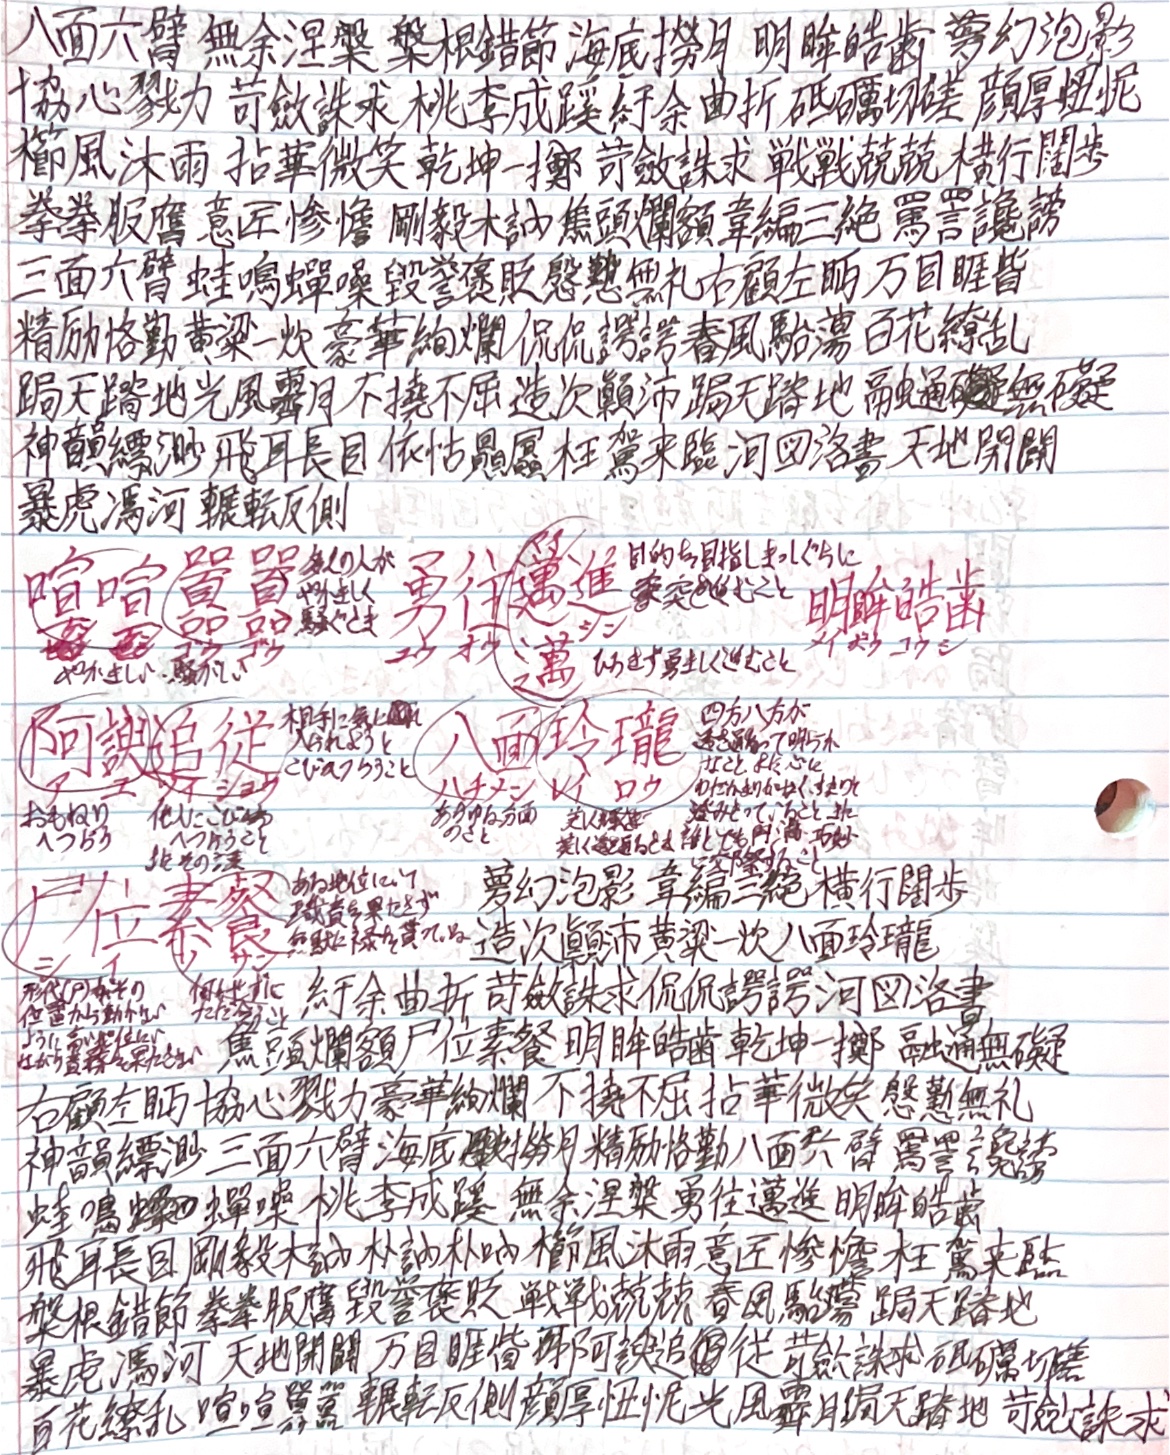 八面六臂 無余涅槃 槃根錯節 海底撈月 明眸皓歯 夢幻泡影
協心戮力 苛斂誅求 桃李成蹊 紆余曲折 砥礪切磋 顔厚忸怩
櫛風沐雨 拈華微笑 乾坤一擲 苛斂誅求 戦戦兢兢 横行闊歩
拳拳服膺 意匠惨憺 剛毅木訥 焦頭爛額 韋編三絶 罵詈讒謗
三面六臂 蛙鳴蟬噪 毀誉褒貶 慇懃無礼 右顧左眄 万目睚眥
精励恪勤 黄粱一炊 豪華絢爛 侃侃諤諤 春風駘蕩 百花繚乱
跼天蹐地 光風霽月 不撓不屈 造次顚沛 跼天蹐地 融通無礙
神韻縹渺 飛耳長目 依怙贔屓 枉駕来臨 河図洛書 天地開闢
暴虎馮河 輾転反側
喧喧囂囂 多くの人がやかましく騒ぐさま
ゴウ ゴウ
やかましい 騒がしい
勇往邁進 目的を目指しまっしぐらに突き進むこと
ユウ オウ シン
邁 ひるまず勇ましく進むこと
明眸皓歯
メイ ボウ コウ シ
阿諛追従 相手に気に入られようとこびへつらうこと
ア ユ ツイ ショウ
おもねりへつらう
他人にこびへつらうこと またその言葉
八面玲瓏 四方八方が透き通って明らかなこと また心にわだかまりがなくすっきりと澄みきっていること また誰とでも円満巧妙に交際すること
ハチ メン レイ ロウ
あらゆる方面のこと
尸位素餐 ある地位にいて職責を果たさず無駄に禄を貰っている
シ イ ソ サン
何もせずにただ食うこと
夢幻泡影 韋編三絶 横行闊歩
造次顚沛 黄粱一炊 八面玲瓏
紆余曲折 苛斂誅求 侃侃諤諤 河図洛書
焦頭爛額 尸位素餐 明眸皓歯 乾坤一擲 融通無礙
右顧左眄 協心戮力 豪華絢爛 不撓不屈 拈華微笑 慇懃無礼
神韻縹渺 三面六臂 海底撈月 精励恪勤 八面六臂 罵詈讒謗
蛙鳴蟬噪 桃李成蹊 無余涅槃 勇往邁進 明眸皓歯
飛耳長目 剛毅木訥 朴訥朴訥 櫛風沐雨 意匠惨憺 枉駕来臨
槃根錯節 拳拳服膺 毀誉褒貶 戦戦兢兢 春風駘蕩 跼天蹐地
暴虎馮河 天地開闢 万目睚眥 阿諛追従 苛斂誅求 砥礪切磋
百花繚乱 喧喧囂囂 輾転反側 顔厚忸怩 光風霽月 跼天蹐地 苛斂誅求